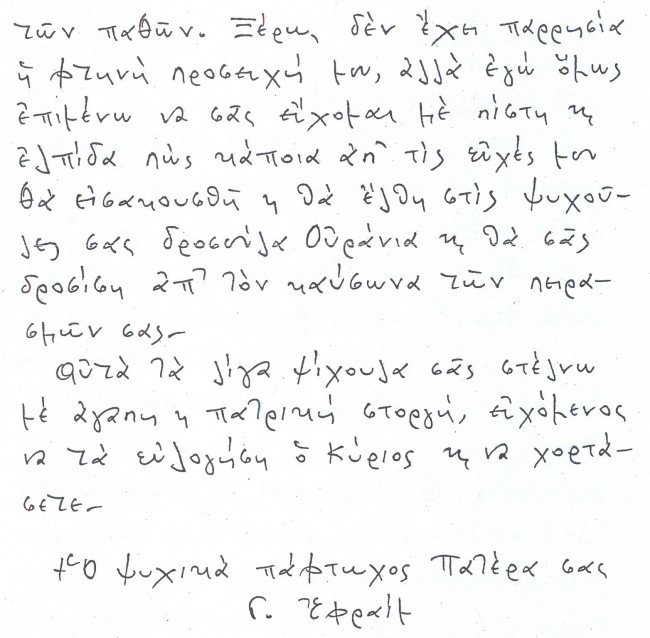 τῶν παθῶν. Ξέρω, δὲν ἔχει παρρησία
ἡ φτηνὴ προσευχή μου, ἀλλὰ ἐγὼ ὅμως
ἐπιμένω νὰ σᾶς εὔχομαι μὲ πίστη κ
ἐλπίδα πὼς κάποια ἀπ' τὶς εὐχές μου
θὰ εἰσακουσθῆ κ θὰ ἔλθη στὶς ψυχοῦ-
λες σας δροσούλα Οὐράνια κ θὰ σᾶς
δροσίση ἀπ' τὸν καύσωνα τῶν πειρα-
σμῶν σας-
Αὐτὰ τὰ λίγα ψίχουλα σᾶς στέλνω
μὲ ἀγάπη κ πατρικὴ στοργή, εὐχόμενος
νὰ τὰ εὐλογήση ὁ Κύριος κ νὰ χορτά-
σετε-
+ Ὁ ψυχικὰ πάφτωχος Πατέρα σας
Γ. Ἐφραὶμ